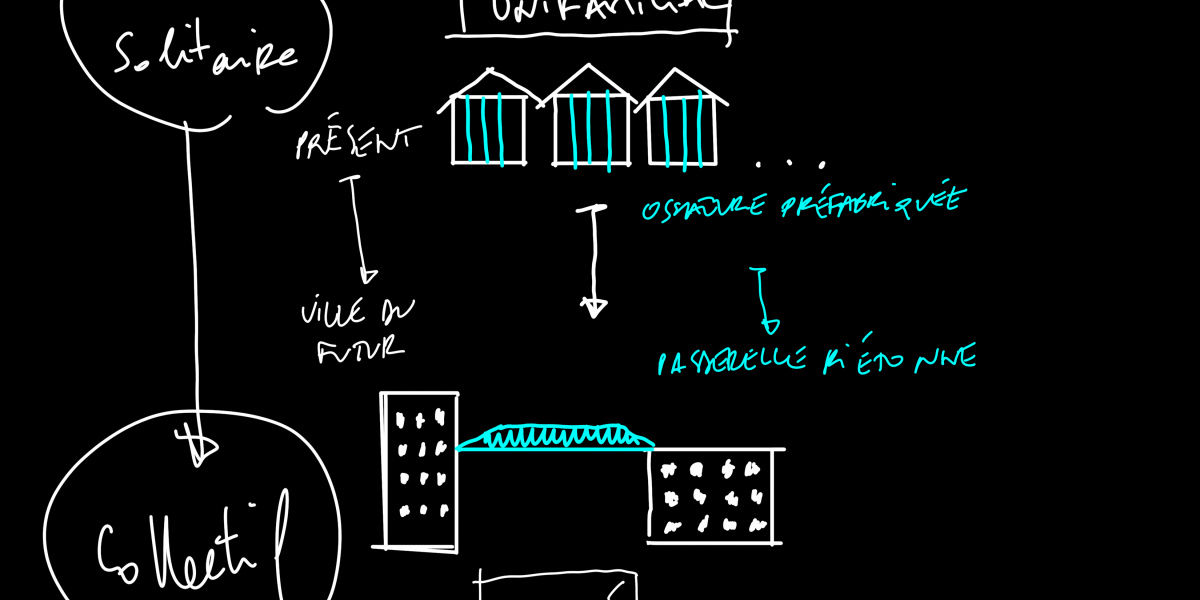 UNIFAMILIAL
Solitaire
PRÉSENT
...
OSSATURE PRÉFABRIQUÉE
VILLE DU
FUTUR
PASSERELLE PIÉTONNE
Collectif